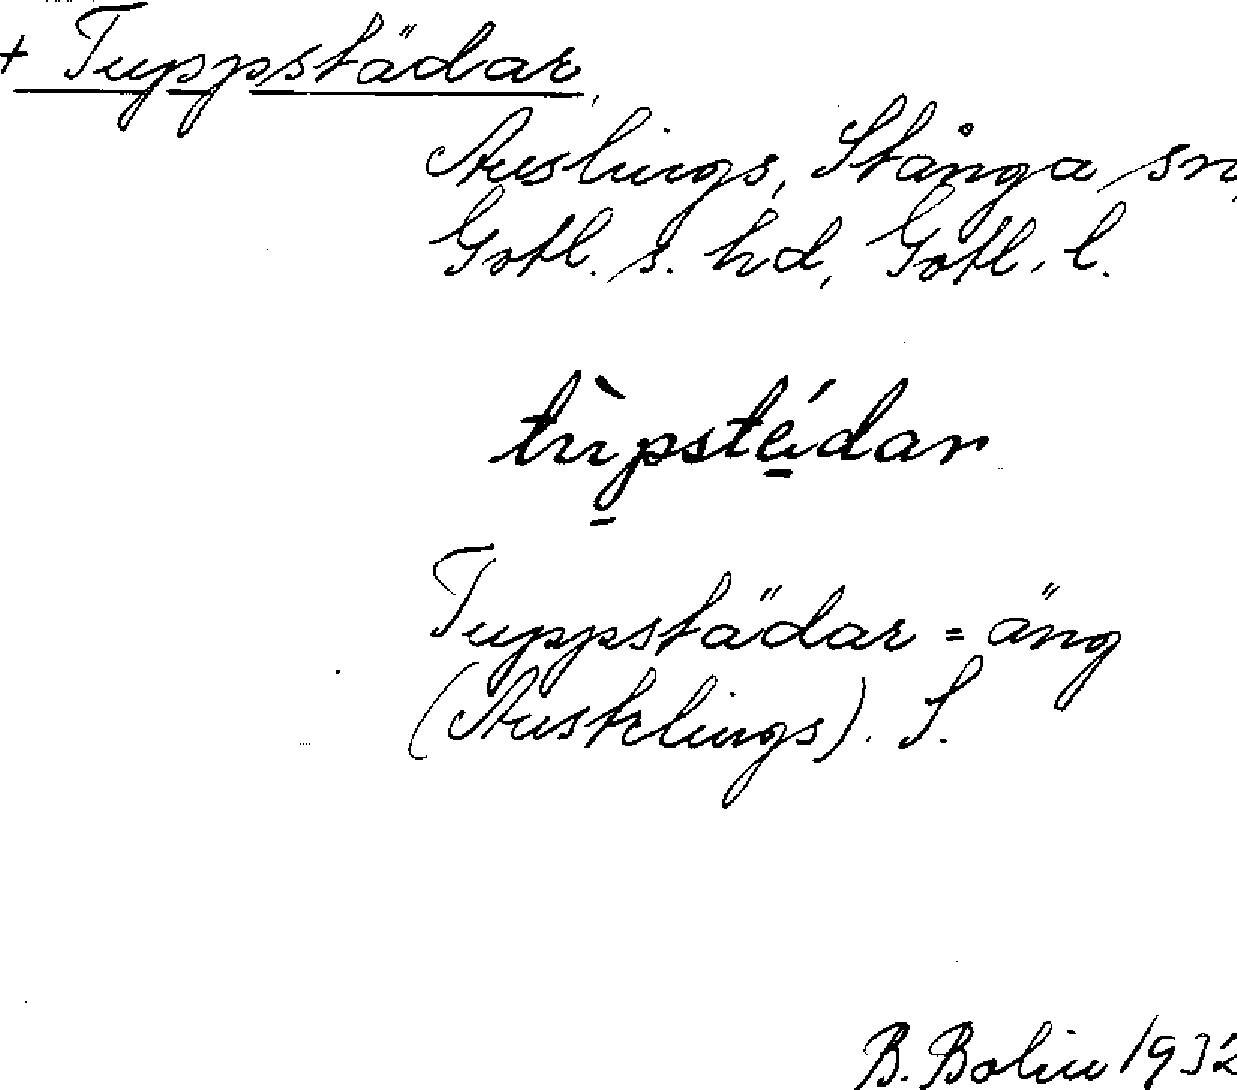 + Tuppstädar
Auslings, Stånga sn,
Gotl. s. hd, Gotl. l.
tùpstédar
Tuppstädar = äng
(Austrlings). S.
B. Bolin 1932